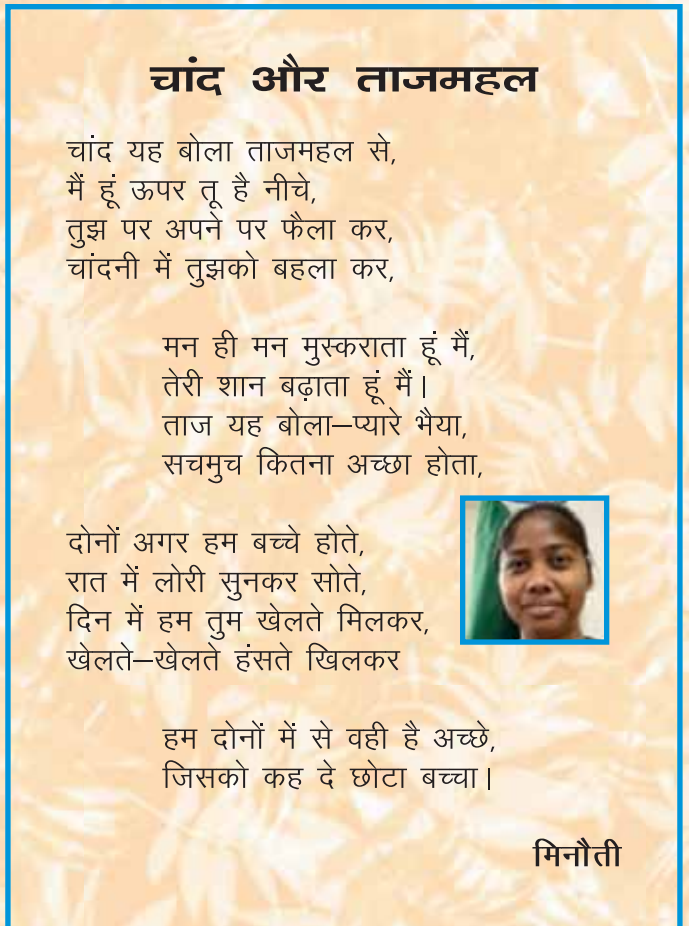 चांद और ताजमहल
चांद यह बोला ताजमहल से,
मैं हूं ऊपर तू है नीचे,
तुझ पर अपने पर फैला कर,
चांदनी में तुझको बहला कर,
मन ही मन मुस्कराता हूं मैं,
तेरी शान बढ़ाता हूं मैं।
ताज यह बोला—प्यारे भैया,
सचमुच कितना अच्छा होता,
दोनों अगर हम बच्चे होते,
रात में लोरी सुनकर सोते,
दिन में हम तुम खेलते मिलकर,
खेलते—खेलते हंसते खिलकर
हम दोनों में से वही है अच्छे,
जिसको कह दे छोटा बच्चा।
मिनौती